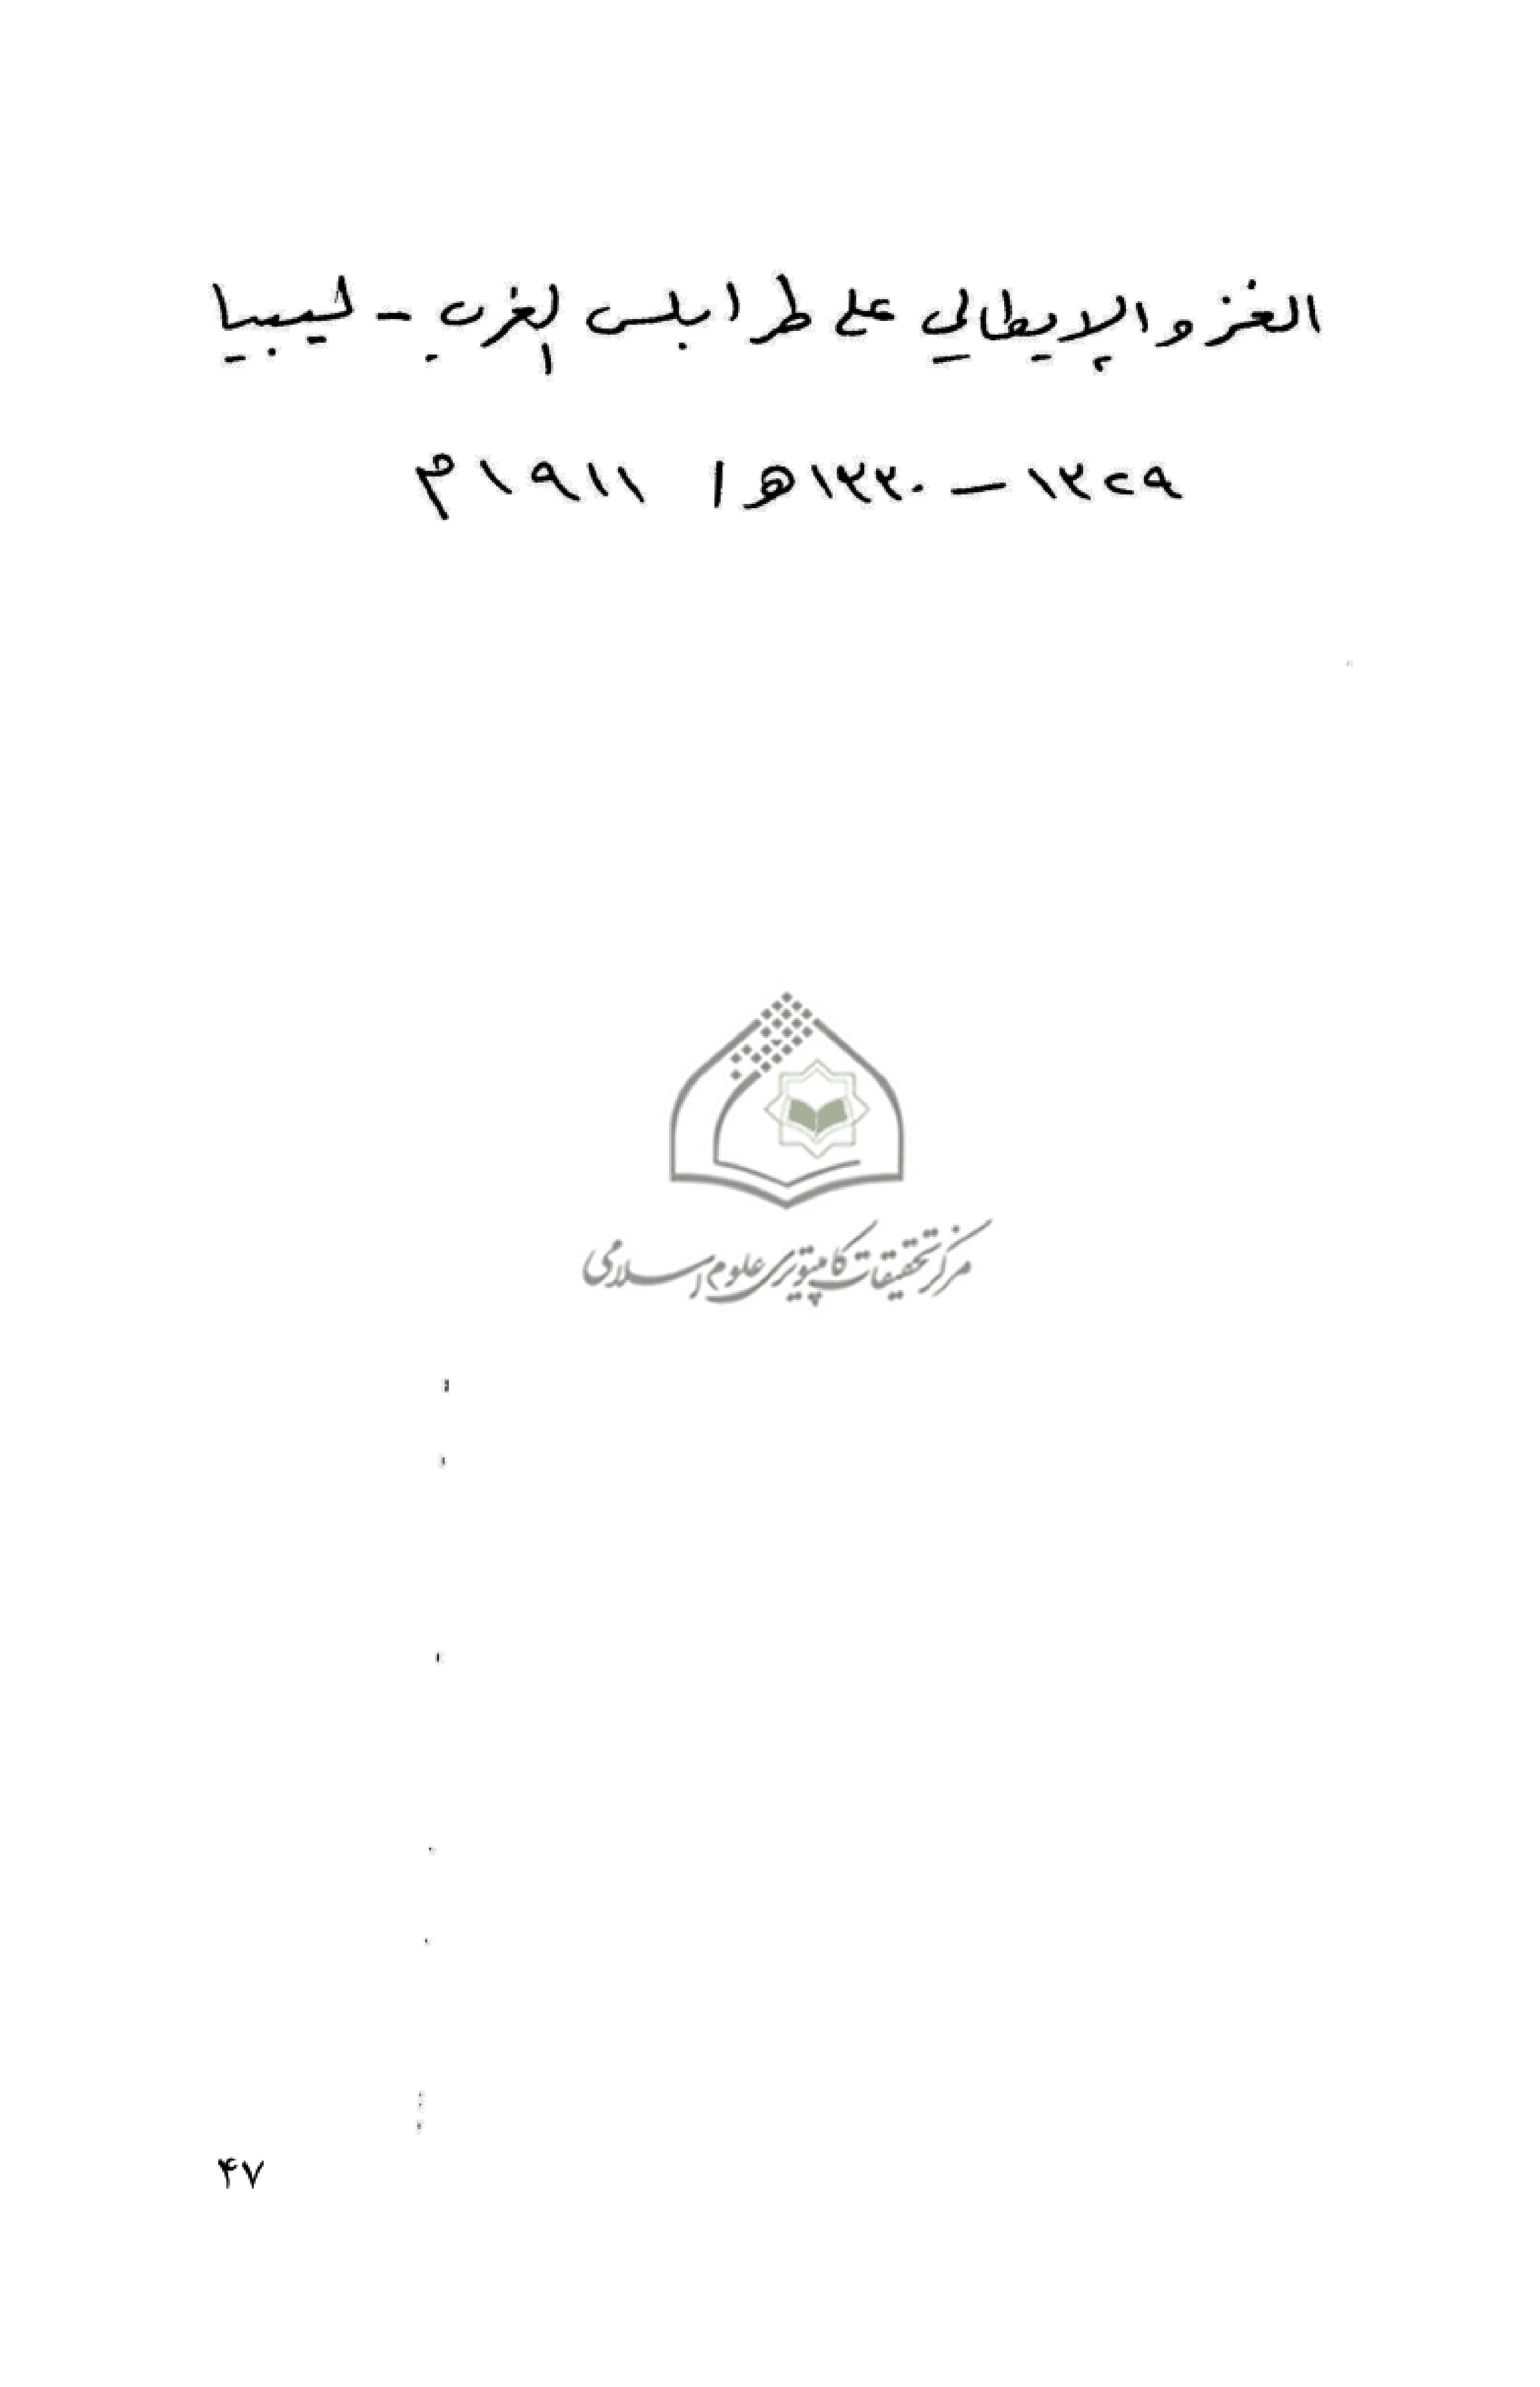 الغزو الإيطالي على طرابلس الغرب - ليبيا
١٣٢٩ - ١٣٣٠هـ / ١٩١١م
مرکز تحقیقات کامپیوتری علوم اسلامی
۴۷